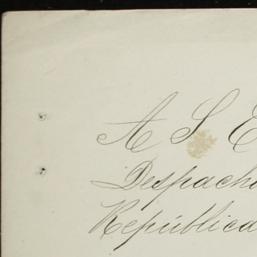 A S E
Despacho
República